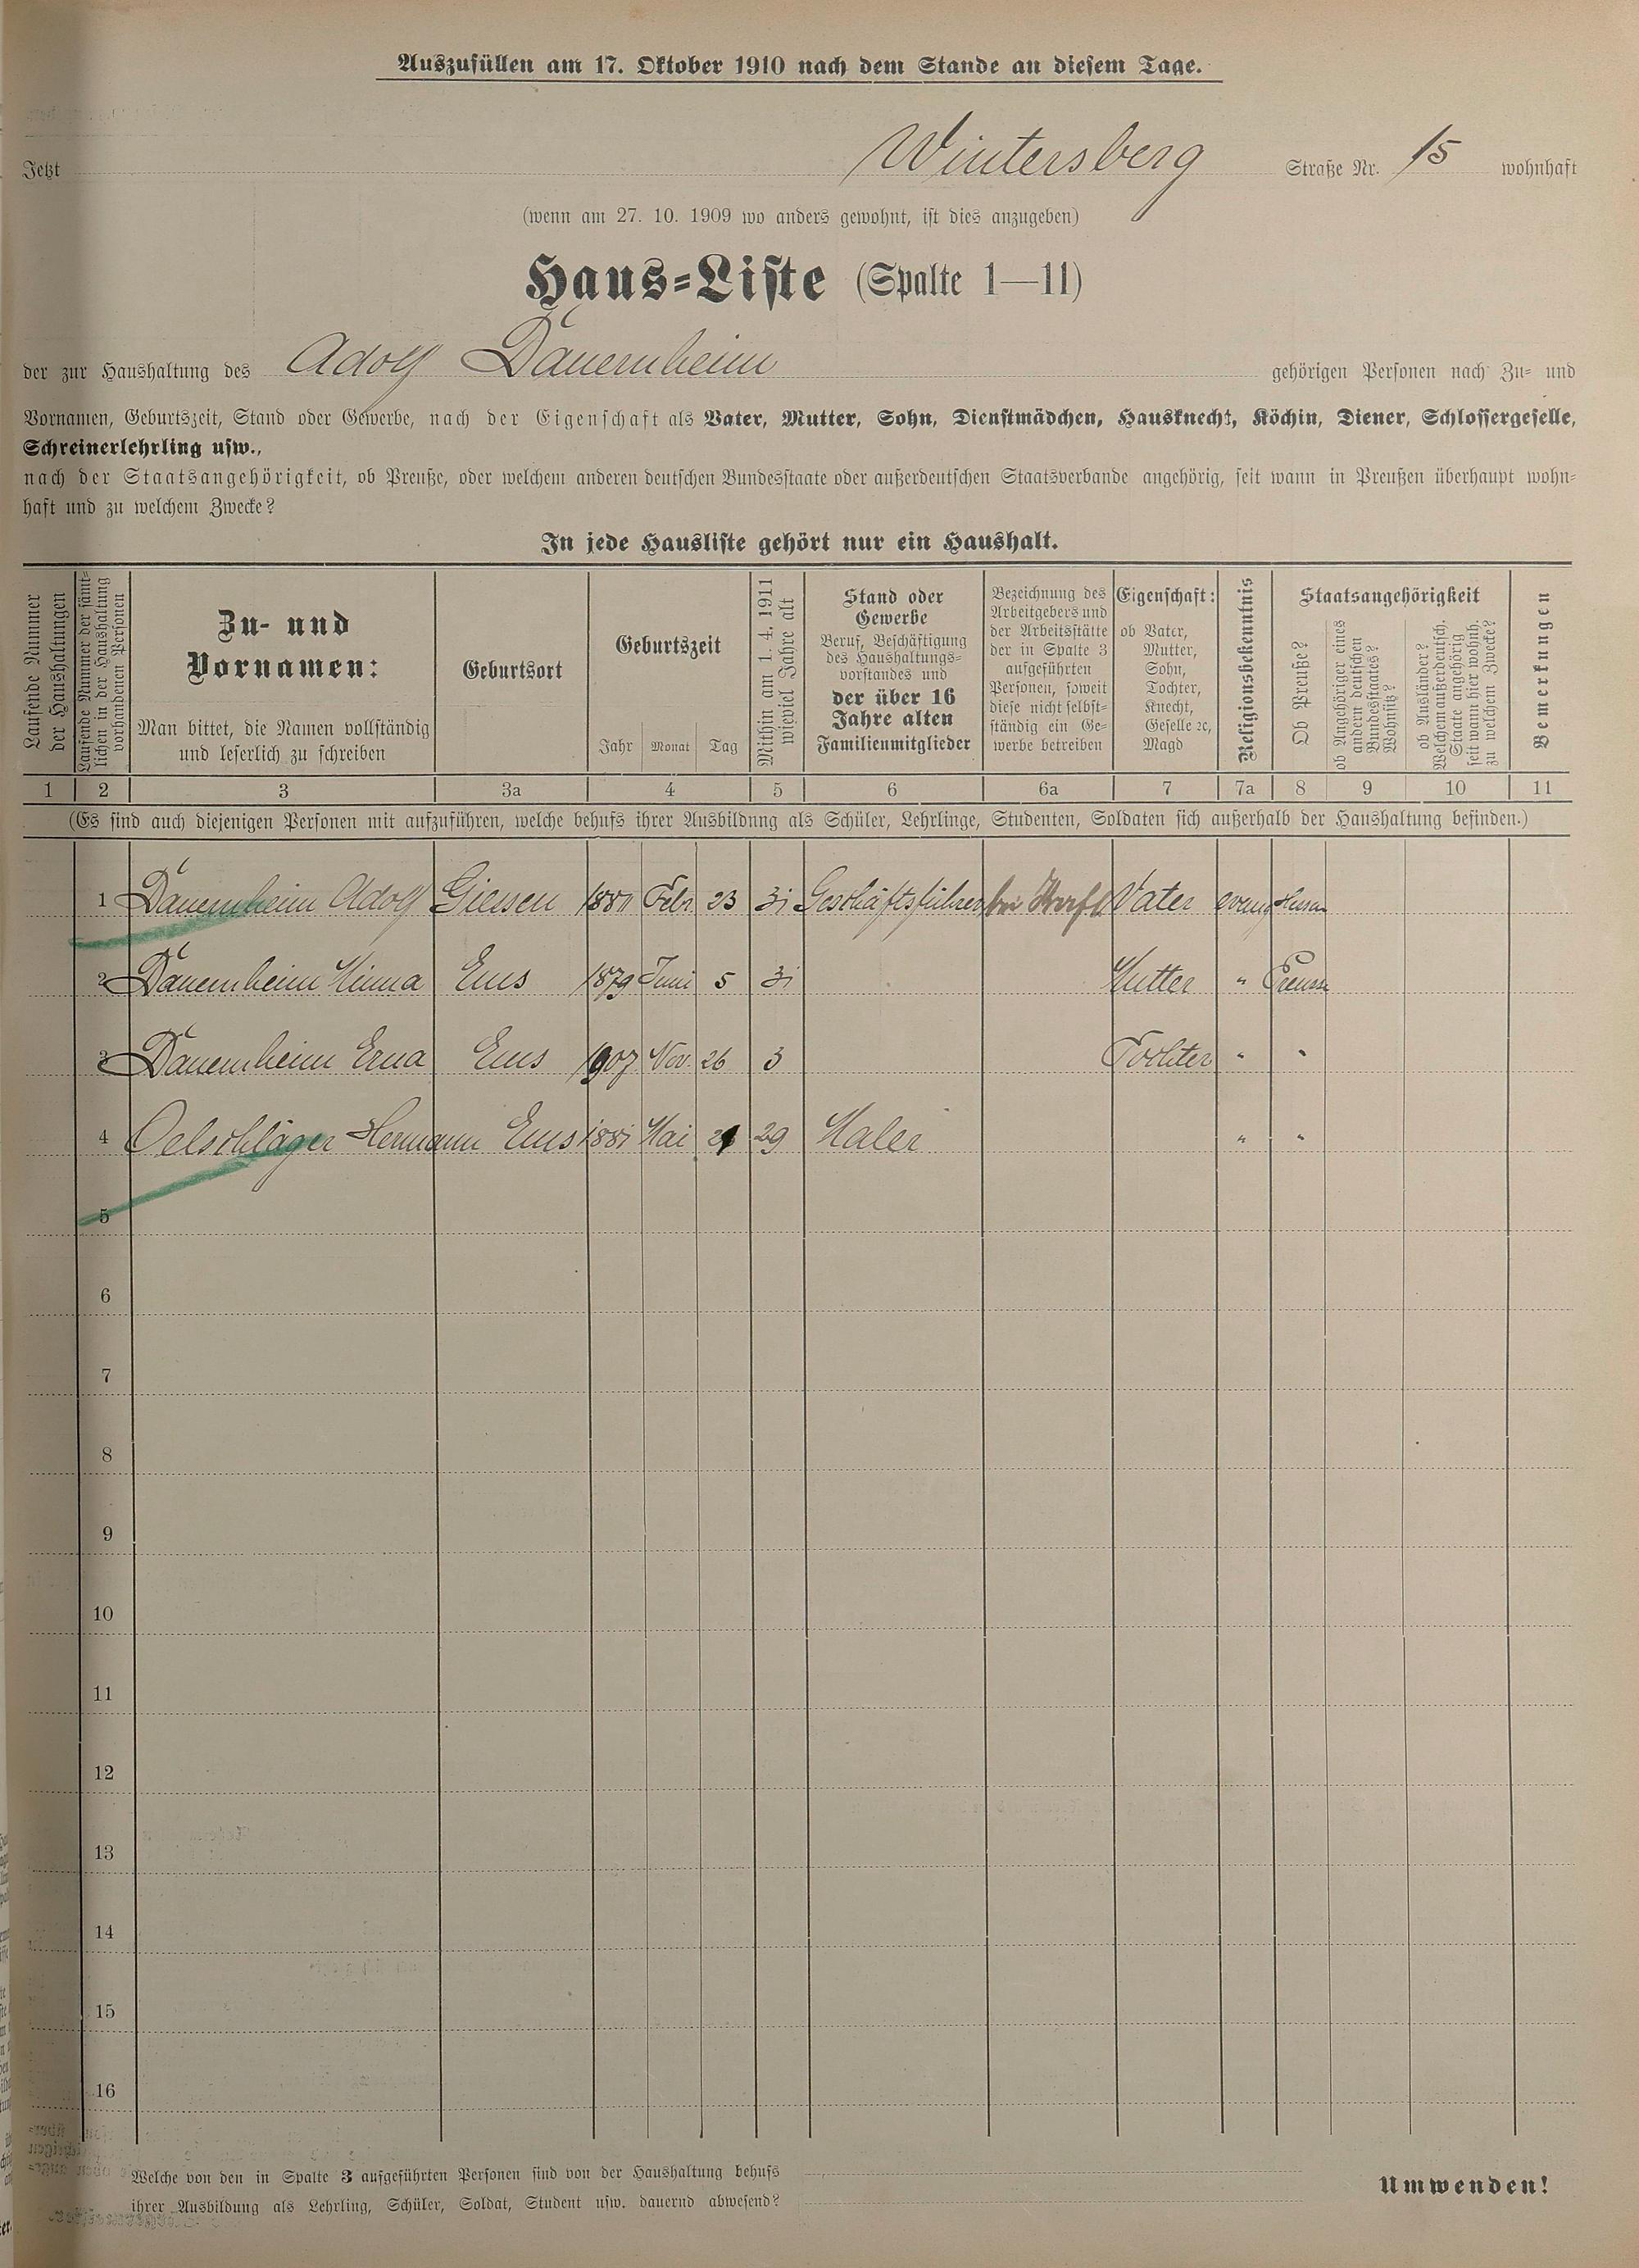 Auszufüllen am 17. Oktober 1910 nach dem Stande an diesem Tage.
Jetzt Wintersberg Straße Nr. 15 wohnhaft
(wenn am 27. 10. 1909 wo anders gewohnt, ist dies anzugeben)
Haus-Liste (Spalte 1—11)
der zur Haushaltung des Adolf Dauernheim gehörigen Personen nach Zu- und
Vornamen, Geburtszeit, Stand oder Gewerbe, nach der Eigenschaft als Vater, Mutter, Sohn, Dienstmädchen, Hausknecht, Köchin, Diener, Schlossergeselle,
Schreinerlehrling usw.,
nach der Staatsangehörigkeit, ob Preuße, oder welchem anderen deutschen Bundesstaate oder außerdeutschen Staatsverbande angehörig, seit wann in Preußen überhaupt wohn-
haft und zu welchem Zwecke?
In jede Hausliste gehört nur ein Haushalt.
Laufende Nummer
der Haushaltungen
Laufende Nummer der sämt-
lichen in der Haushaltung
vorhandenen Personen
Zu- und
Vornamen:
Man bittet, die Namen vollständig
und leserlich zu schreiben
Geburtsort
Geburtszeit
Jahr Monat Tag
Mithin am 1. 4. 1911
wieviel Jahre alt
Stand oder
Gewerbe
Beruf, Beschäftigung
des Haushaltungs-
vorstandes und
der über 16
Jahre alten
Familienmitglieder
Bezeichnung des
Arbeitgebers und
der Arbeitsstätte
der in Spalte 3
aufgeführten
Personen, soweit
diese nicht selbst-
ständig ein Ge-
werbe betreiben
Eigenschaft:
ob Vater,
Mutter,
Sohn,
Tochter,
Knecht,
Geselle ꝛc,
Magd
Religionsbekenntnis
Staatsangehörigkeit
Ob Preuße?
ob Angehöriger eines
andern deutschen
Bundesstaates?
Wohnsitz?
ob Ausländer?
Welchem außerdeutsch.
Staate angehörig
seit wann hier wohnh.
zu welchem Zwecke?
Bemerkungen
1 2 3 3a 4 5 6 6a 7 7a 8 9 10 11
(Es sind auch diejenigen Personen mit aufzuführen, welche behufs ihrer Ausbildung als Schüler, Lehrlinge, Studenten, Soldaten sich außerhalb der Haushaltung befinden.)
1 Dauernheim Adolf Giessen Febr. 23 31 Geschäftsführer bei Vater evang
2 Dauernheim Minna Ems 1879 Juni 5 31 Mutter " Preusse
3 Dauernheim Erna Ems 1907 Nov. 26 3 Tochter " "
4 Oelschläger Hermann Ems 1881 Mai 29 Maler " "
5
6
7
8
9
10
11
12
13
14
15
16
Welche von den in Spalte 3 aufgeführten Personen sind von der Haushaltung behufs
ihrer Ausbildung als Lehrling, Schüler, Soldat, Student usw. dauernd abwesend?
Umwenden!